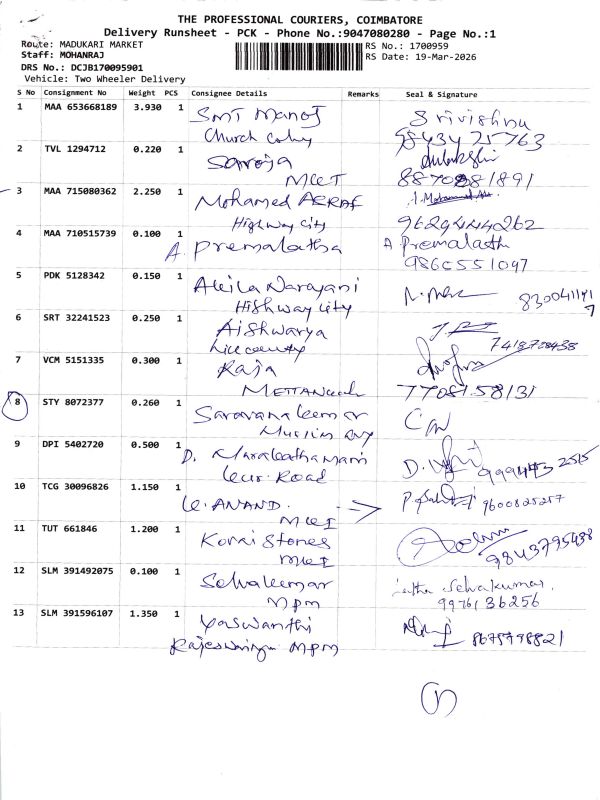 THE PROFESSIONAL COURIERS, COIMBATORE
Delivery Runsheet - PCK - Phone No.:9047080280 - Page No.:1
Route: MADUKARI MARKET RS No.: 1700959
Staff: MOHANRAJ RS Date: 19-Mar-2026
DRS No.: DCJB170095901
Vehicle: Two Wheeler Delivery
S No Consignment No Weight PCS Consignee Details Remarks Seal & Signature
1 MAA 653668189 3.930 1 SMT Manoj Srivishnu
Church Colny 98434 25763
2 TVL 1294712 0.220 1 Saroja
MCET 8870881891
3 MAA 715080362 2.250 1 Mohamed ASRAF
Highway City 9629444262
4 MAA 710515739 0.100 1 A. Premalatha A Premalath
9860551097
5 PDK 5128342 0.150 1 Akila Narayani
Highway city
6 SRT 32241523 0.250 1 Aishwarya 7418708438
7 VCM 5151335 0.300 1 Raja
7708158131
8 STY 8072377 0.260 1 Saravanakumar
9 DPI 5402720 0.500 1 D.
Road
10 TCG 30096826 1.150 1 K. ANAND. 9600825257
11 TUT 661846 1.200 1 Kovai Stones
9843795438
12 SLM 391492075 0.100 1 Selvakumar Selvakumar
MPM 9976136256
13 SLM 391596107 1.350 1 Yaswanthi 8675798821
MPM